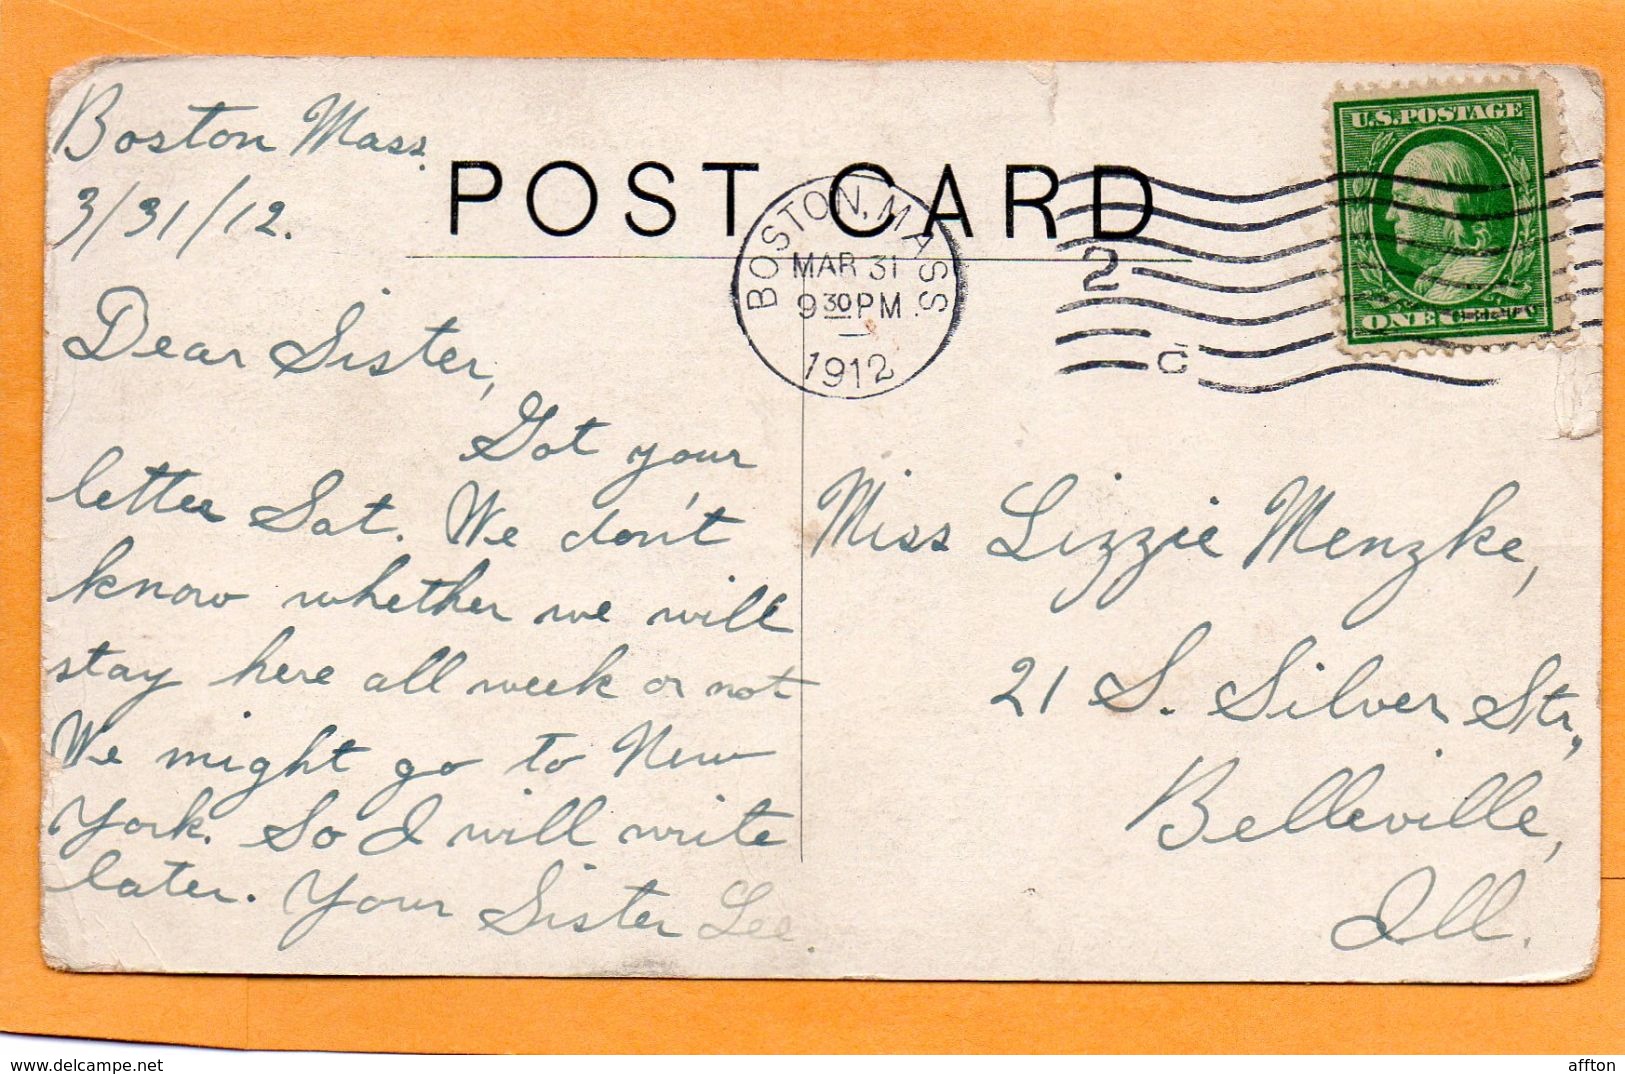 Boston Mass.
3/31/12.
POST CARD
BOSTON, MASS
MAR 31
9 30 PM
1912
2
C
U.S. POSTAGE
ONE CENT
Dear Sister,
Got your
letter Sat. We don't
know whether we will
stay here all week or not
We might go to New
York. So I will write
later. Your Sister Lee.
Miss Lizzie Menzke,
21 S. Silver Str.,
Belleville,
Ill.
delcampe.net
affton